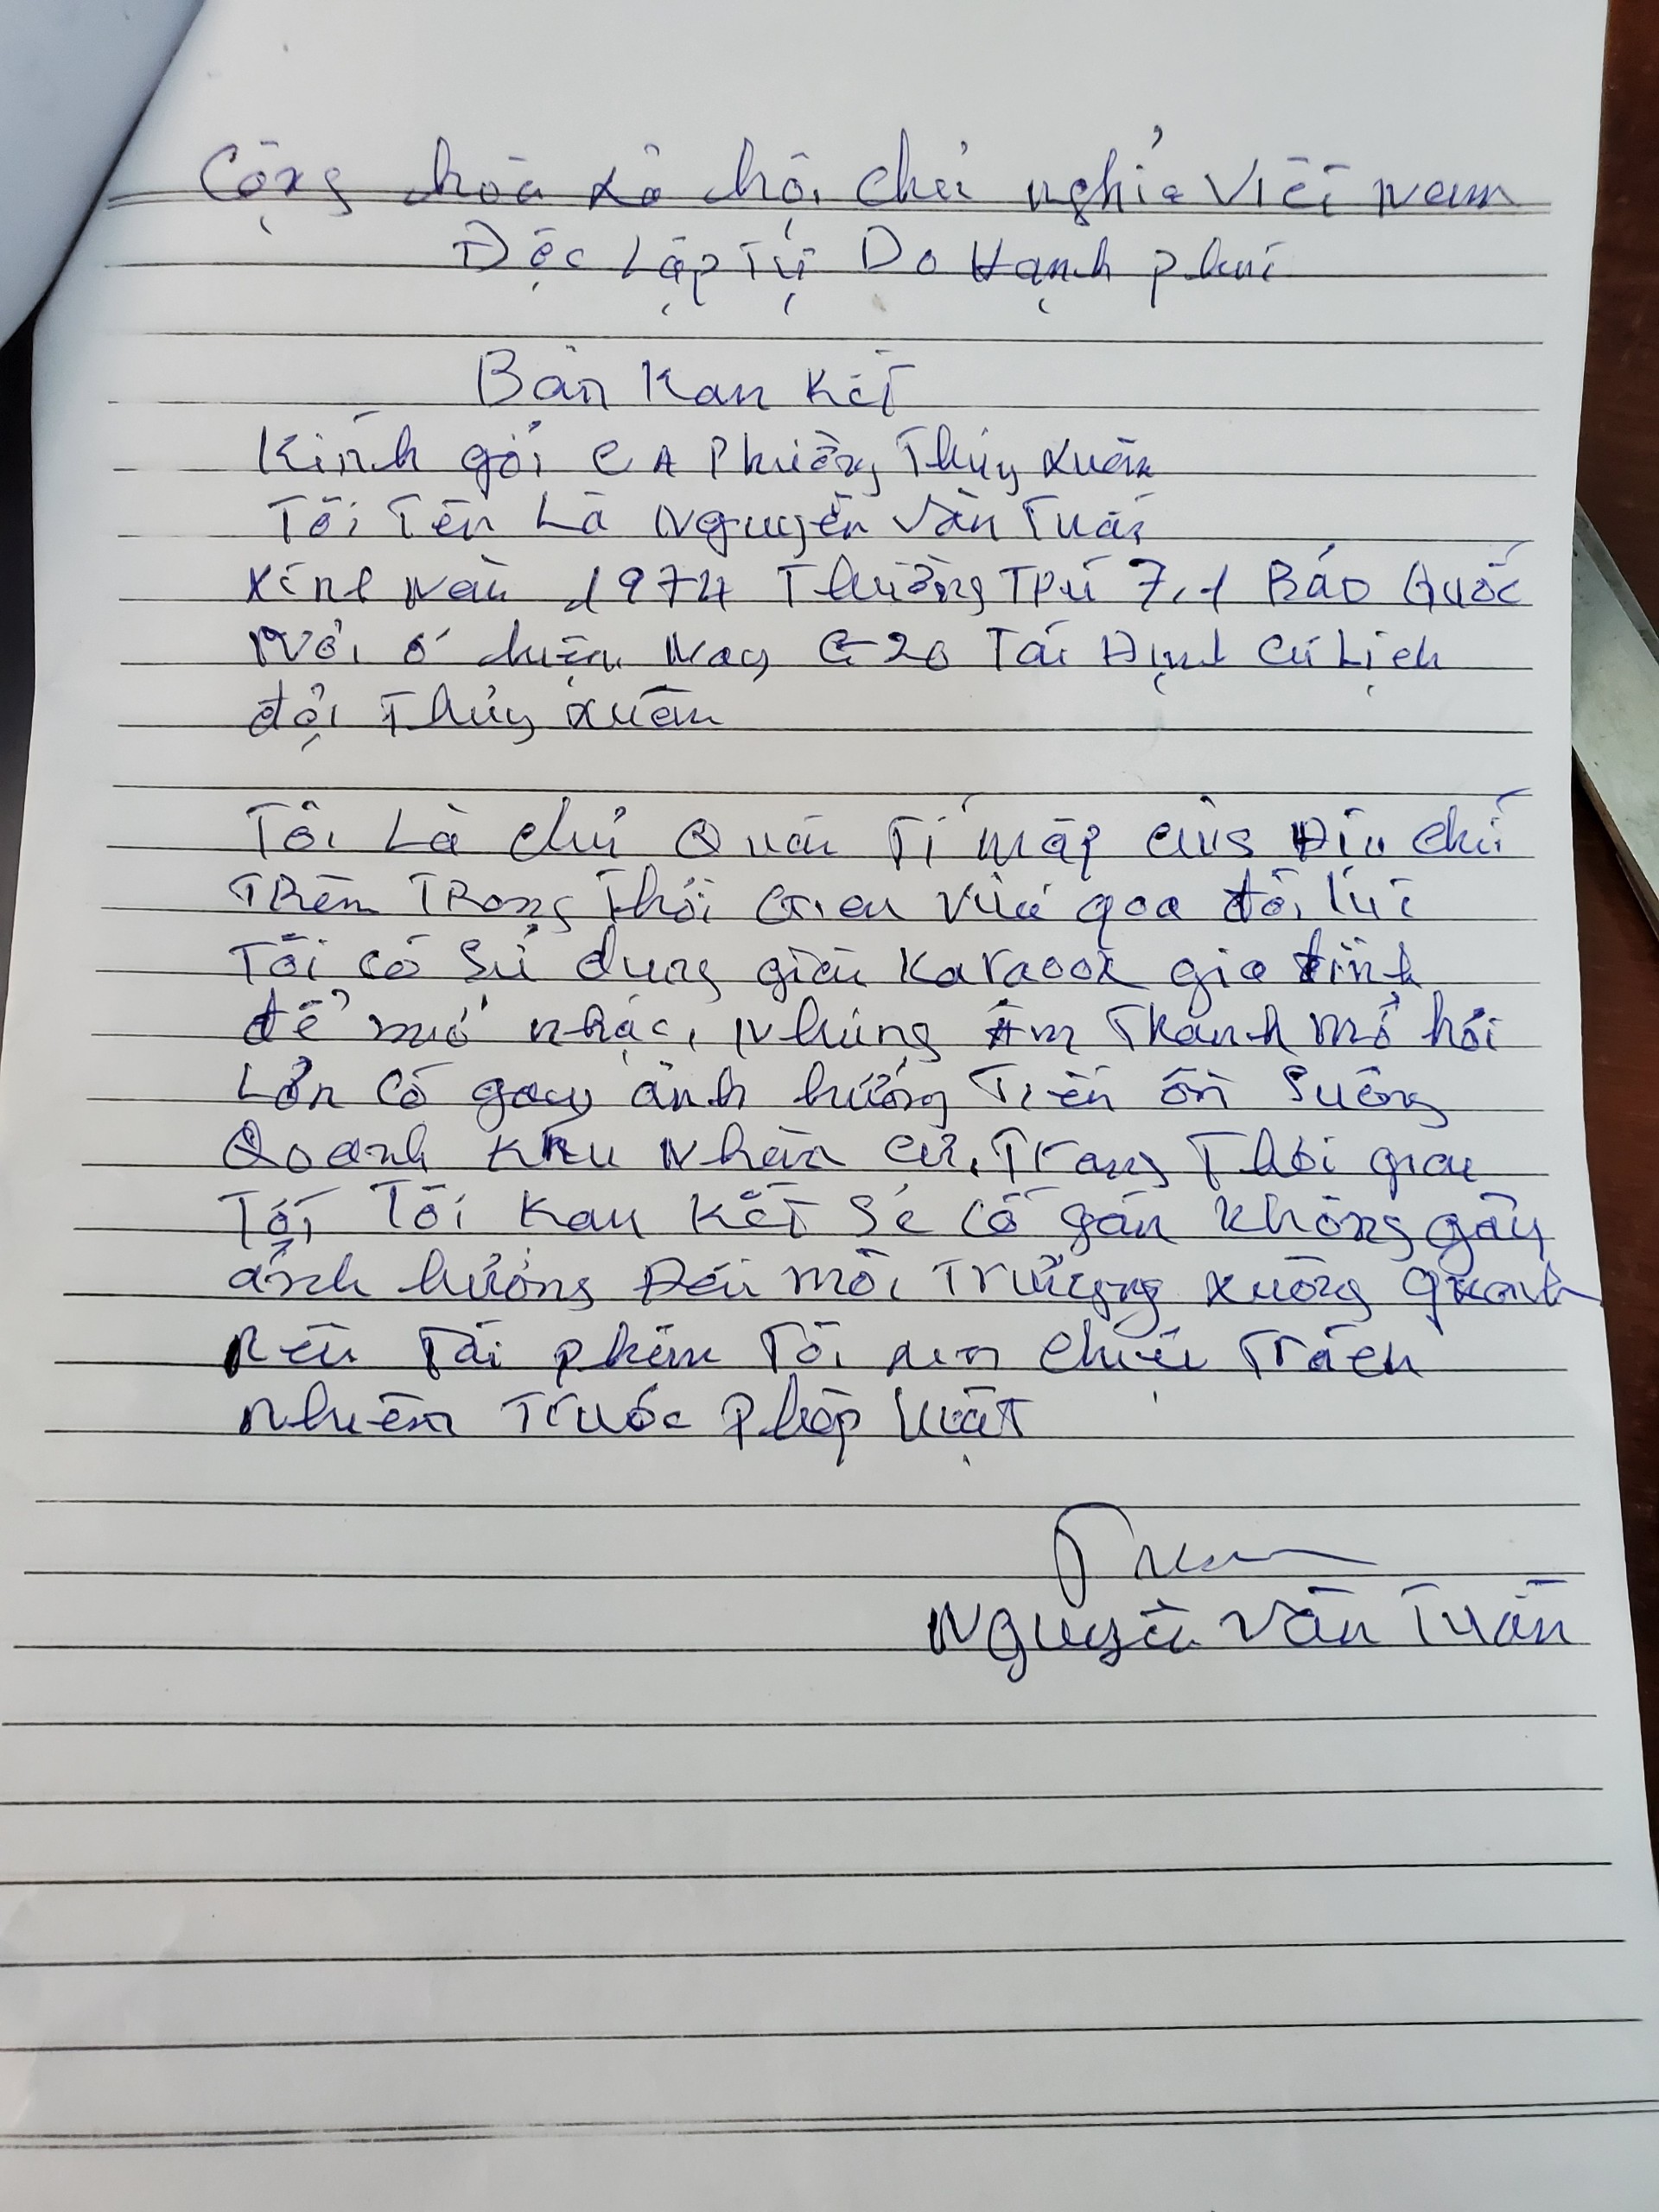 Cộng hòa xã hội chủ nghĩa Việt Nam
Độc Lập Tự Do Hạnh phúc
Bản Kam Kết
Kính gởi CA Phường Thủy Xuân
Tôi Tên Là Nguyễn Văn Tuấn
Xinh Năm 1974 Thường Trú 7.1 Báo Quốc
Nơi ở hiện Nay G-20 Tái Định Cư Lịch
đợi Thủy Xuân
Tôi Là chủ Quán Tí mập cùng Địa chỉ
Trên Trong Thời Gian Vừa qoa đôi lúc
Tôi có Sử dụng giàn Karaook gia đình
để mở nhạc, Nhưng Âm Thanh mở hơi
Lớn Có gay ảnh hưởng Tiến ồn Suông
Qoanh khu Nhân cư, Trong Thời gian
Tới Tôi Kam Kết Sẽ Cố gắn không gây
ảnh hưởng Đến môi Trường xuông quanh
nếu Tái phạm Tôi xin chiệu Trách
nhiệm Trước Pháp Luật
Nguyễn Văn Tuấn